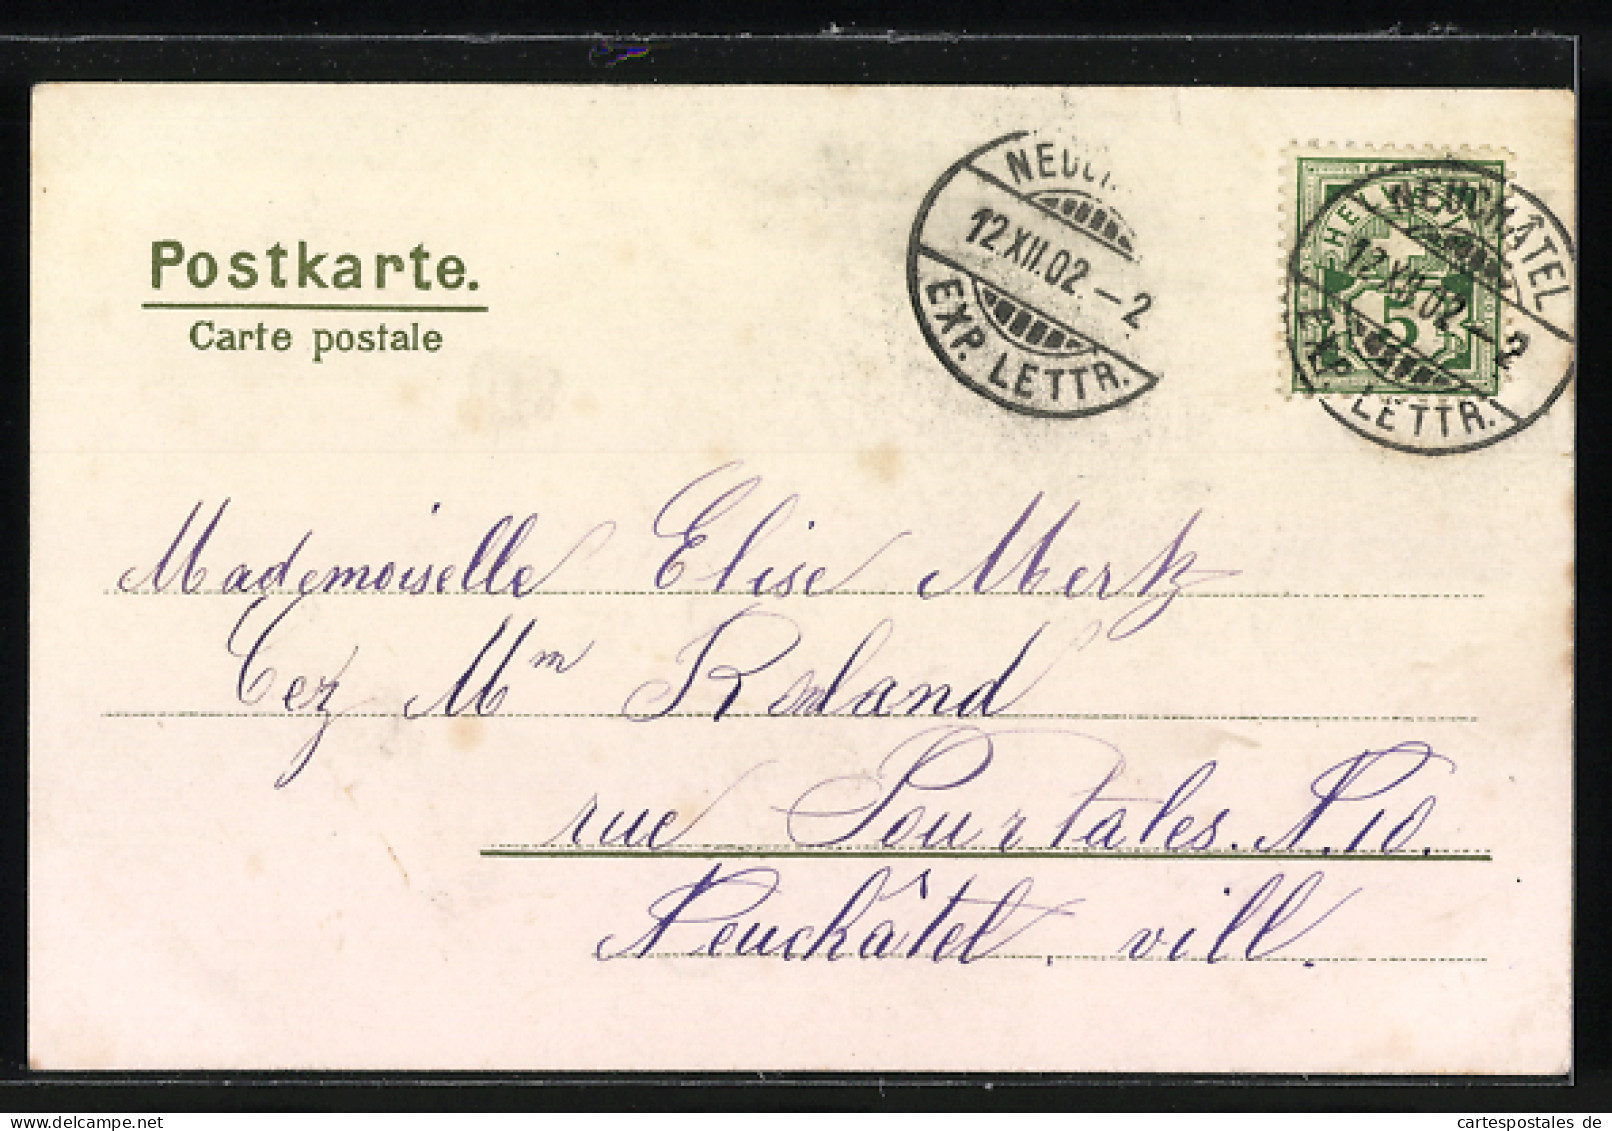 Postkarte.
Carte postale
NEUCH
12.XII.02.–2
EXP. LETTR.
HELVETIA
5
NEUCHÂTEL
12.XII.02.–2
EXP. LETTR.
Mademoiselle Elise Merk
Cez Mm Roland
rue Pourtales. N. 10.
Neuchâtel, vill.
www.cartespostales.de